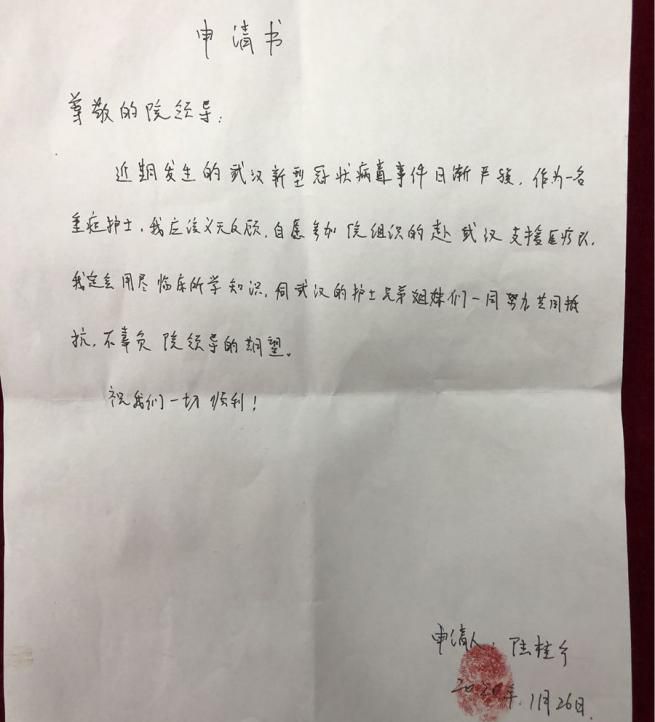 申请书
尊敬的院领导:
近期发生的武汉新型冠状病毒事件日渐严峻,作为一名
重症护士,我应该义无反顾,自愿参加院组织的赴武汉支援医疗队,
我定会用尽临床所学知识,同武汉的护士兄弟姐妹们一同努力共同抵
抗,不辜负院领导的期望。
祝我们一切顺利!
申请人:陆桂
2020年,1月26日.